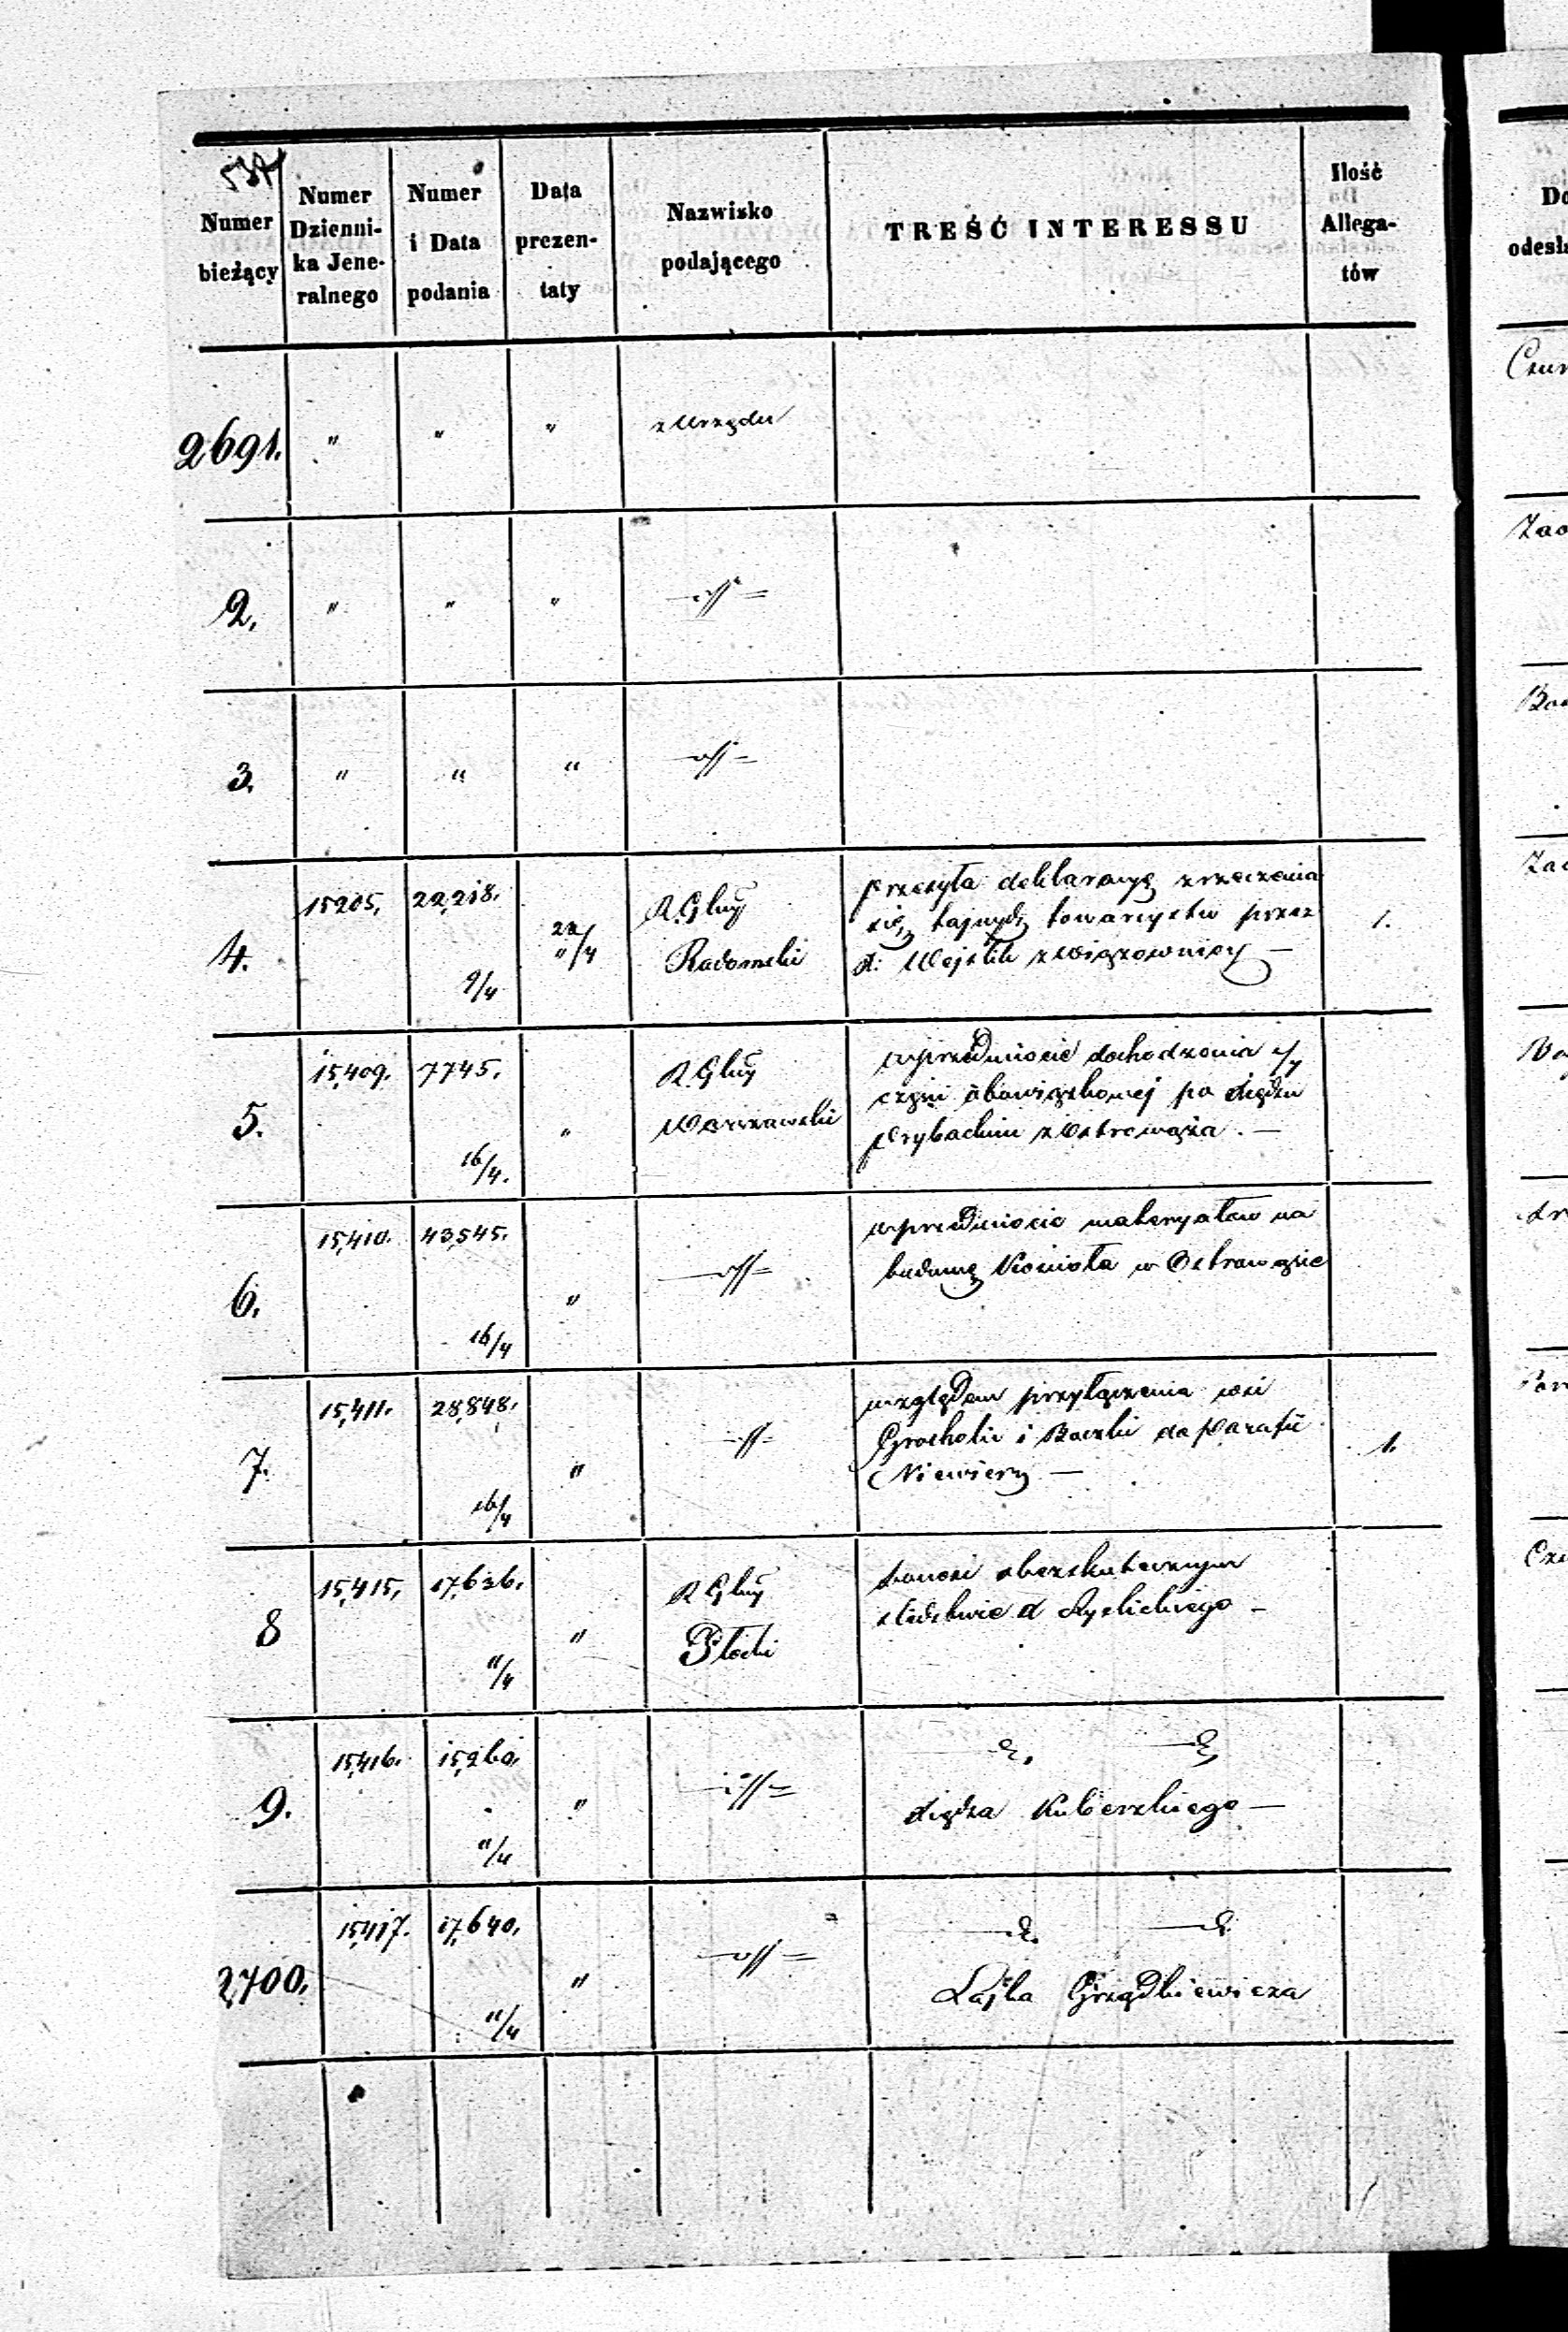 Numer bieżący
Numer Dzienni-ka Jene-ralnego
Numer i Data podania
Data prezen-taty
Nazwisko podającego
TREŚĆ INTERESSU
Ilość Allega-tów
2691. " " " z Urzędu
2. " " "
3. " " "
4. 15205, 22,218. 9/4 22/4 R. Glny Radomski
przesyła deklaracyę zrzeczenia
się tajnych towarzystw przez
X. Wojcik z Wiązownicy —
1.
5. 15,409. 7745. 16/4. " R. Glny Warszawski
w przedmiocie dochodzenia
części obowiązkowej po Xiędzu
Prybackim z Ostrowąża. —
6. 15,410. 43,545. 16/4 "
w przedmiocie materyałów na
budowę Kościoła w Ostrowążie
7. 15,411. 28,848. 16/4 "
względem przyłączenia wsi
Grocholic i Baczki do Parafii
Niewierz —
1.
8 15,415, 17,636. 11/4 " R. Glny Płocki
donosi o bezskutecznym
śledztwie X.
9. 15,416. 15,260. 11/4 "
Xiędza Kuberskiego —
2,700. 15,417. 17,640. 11/4 "
Lajba Grządkiewicza